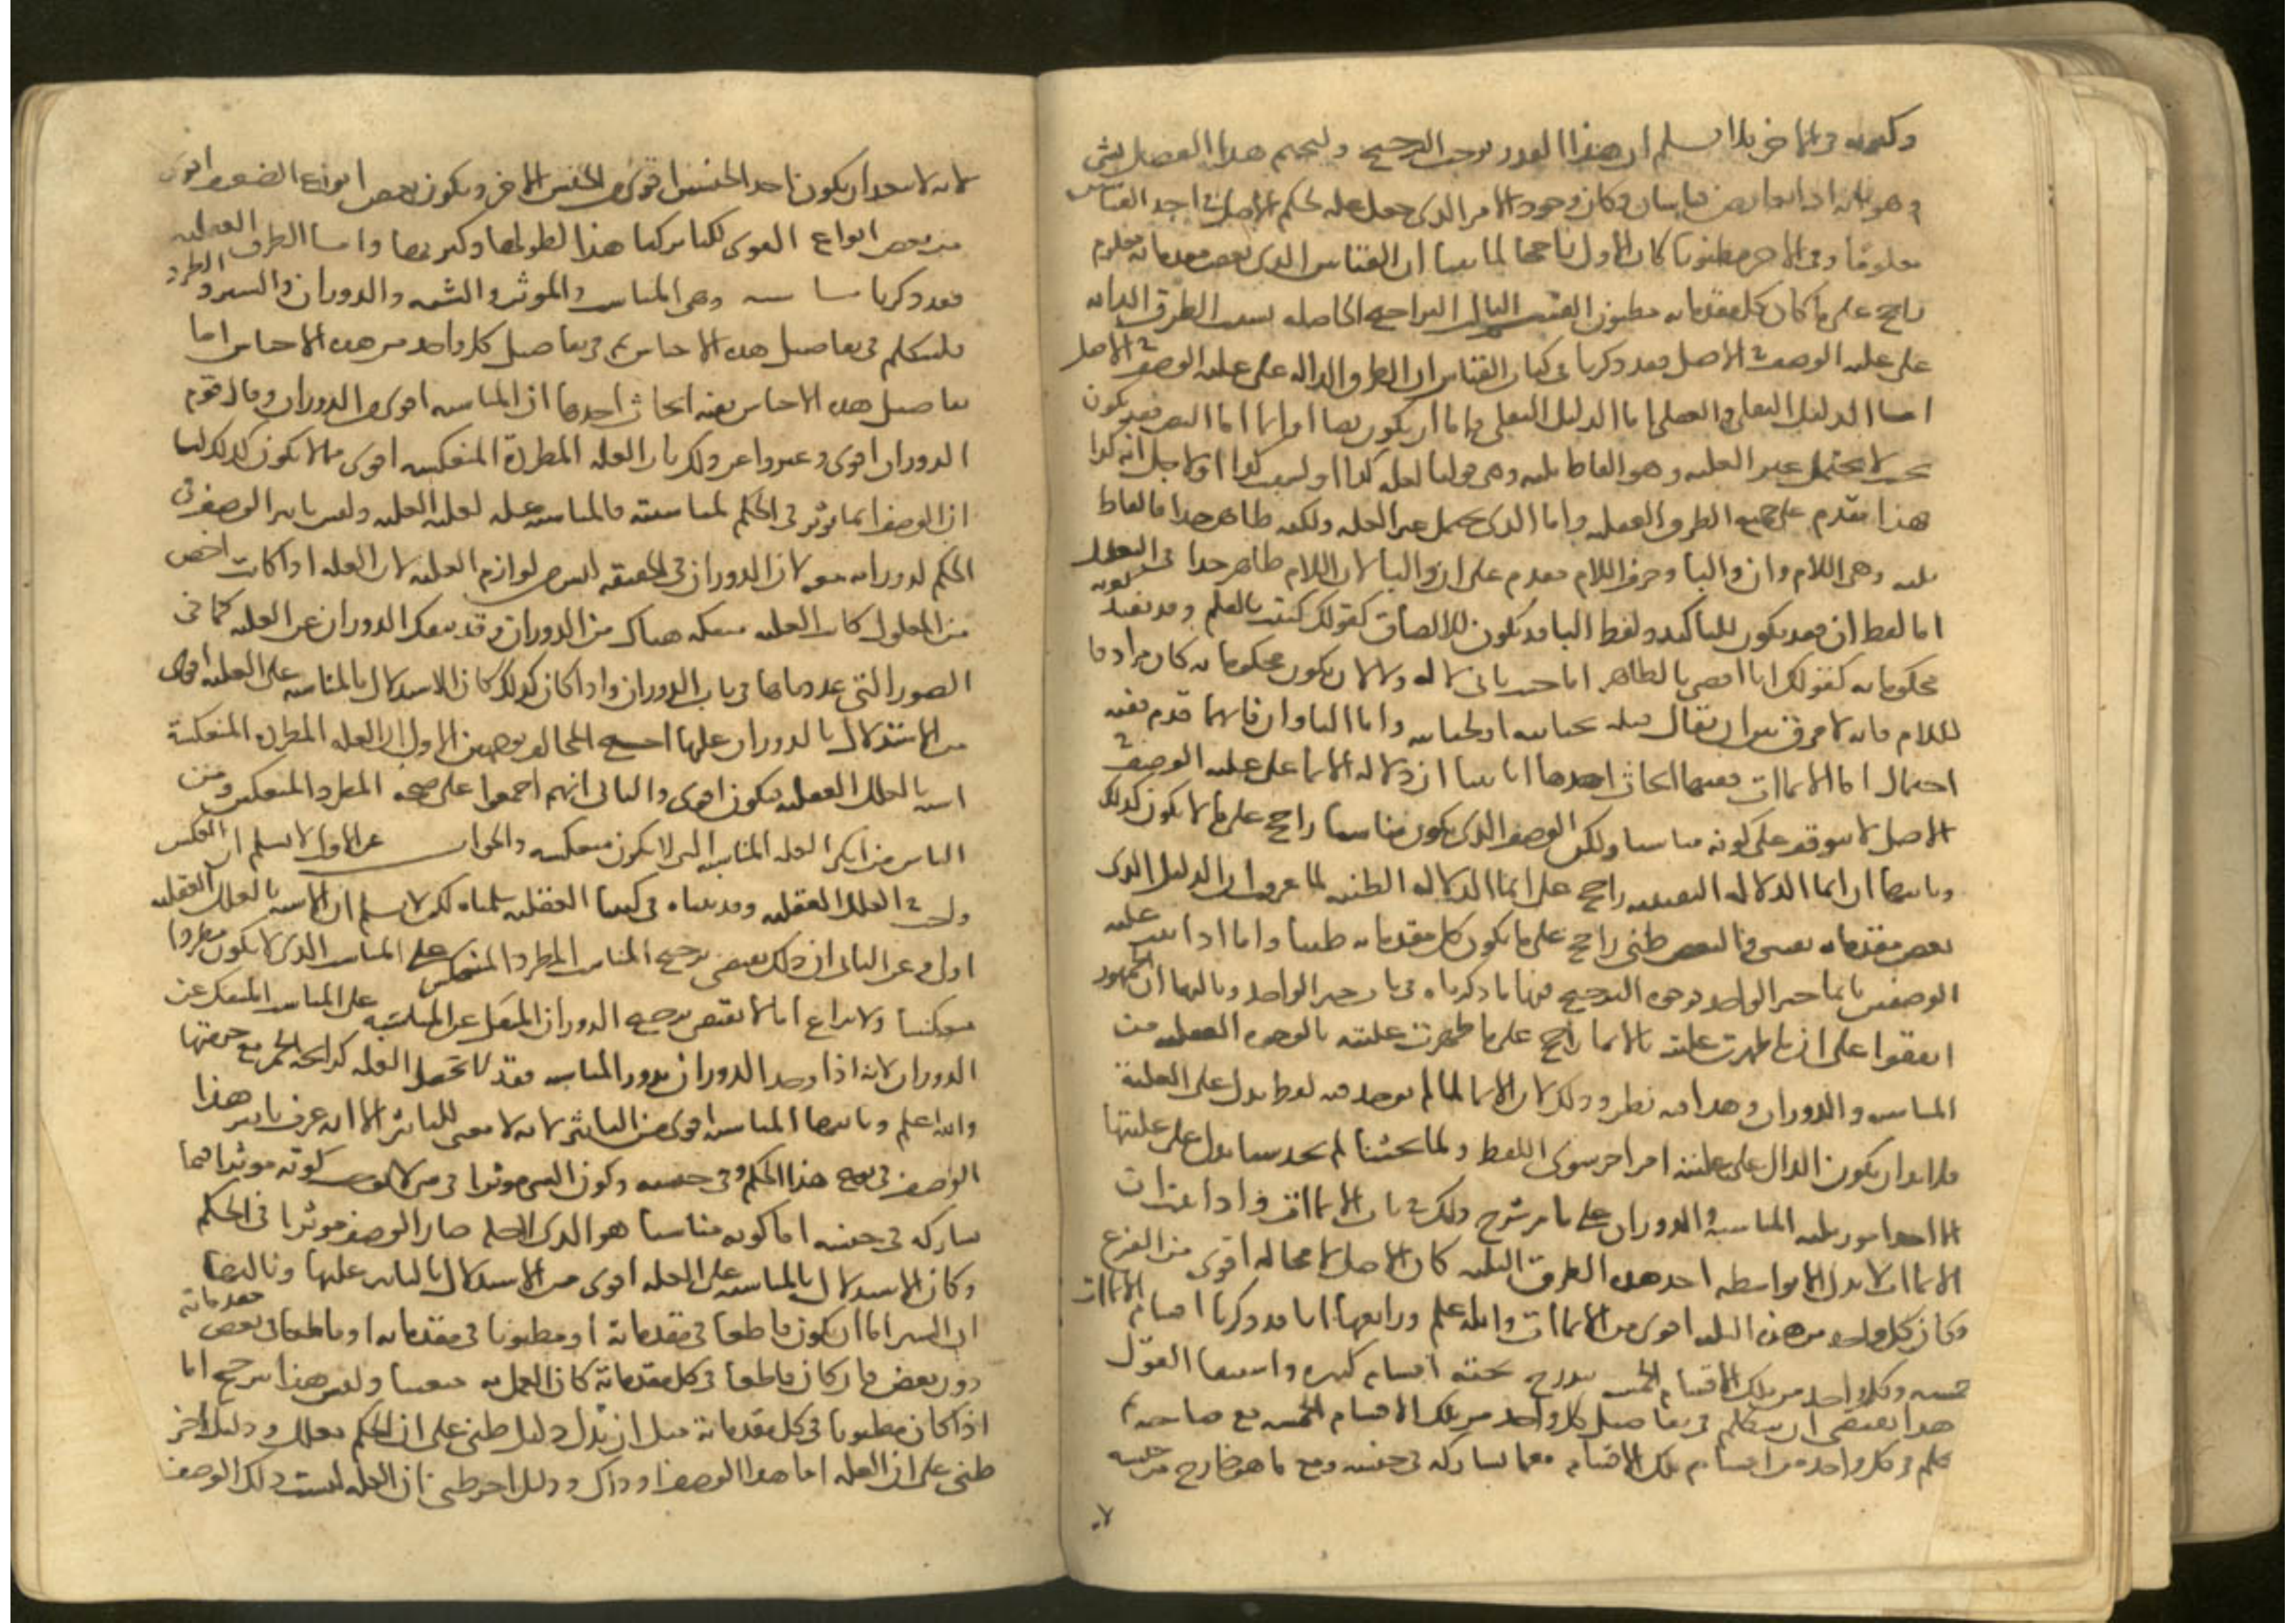 وكثرته في الآخر فلا نسلم ان هذا القدر يوجب الترجيح ولنختم هذا الفصل بشي
وهو بانه اذا تعارض قياسان وكان وجود الامر الذي جعل علة لحكم الاصل في احد القياس
معلوما وفي الاخر مظنونا كان الاول راجحا لما بينا ان القياس الذي بعض مقدماته معلوم
راجح على ما كان كل مقدماته مظنون القسم الثاني التراجيح الحاصلة بسبب الطرق الدالة
على علية الوصف في الاصل قد ذكرنا في كتاب القياس ان الطرق الدالة على علية الوصف في الاصل
اما الدليل النقلي او العقلي اما الدليل النقلي فاما ان يكون نصا او ايما اما النص فقد يكون
بحيث لا يحتمل غير العلية وهو الفاظ ثلثة وهي قولنا لعلة كذا او لسبب كذا او لاجل انه كذا
هذا مقدم على جميع الطرق العقلية واما الذي يحتمل غير العلة ولكنه ظاهر جدا فالفاظ
ثلثة وهي اللام وان والبا وحرف اللام مقدم على ان والبا لان اللام ظاهر جدا في التعليل
اما لفظ ان فقد يكون للتاكيد ولفظ البا قد يكون للالصاق كقولك كتبت بالقلم وقد تفيد كونه
محكوما به كقولك انا اقضي بالظاهر اما حيث ياتي لا له ولا لان يكون محكوما به كان مرادفا
لللام فانه لا فرق بين ان يقال قتلته بجنايته او لجنايته واما البا وان فايهما قدم ففيه
احتمال اما الايماات ففيها ابحاث احدها انا بينا ان دلالة الايما على علية الوصف في
الاصل لا تتوقف على كونه مناسبا ولكن الوصف الذي يكون مناسبا راجح على ما لا يكون كذلك
وثانيها ان ايما الدلالة اليقينية راجح على ايما الدلالة الظنية لما عرف ان الدليل الذي
بعض مقدماته يقيني والبعض ظني راجح على ما يكون كل مقدماته ظنيا واما اذا ثبت علية
الوصفين بايما خبر الواحد فوجوه الترجيح فيها ما ذكرناه في باب خبر الواحد وثالثها ان الجمهور
اتفقوا على ان ما ظهرت عليته بالايما راجح على ما ظهرت عليته بالوجوه العقلية من
المناسبة والدوران وهذا فيه نظر وذلك لان الايما لما لم يوجد فيه لفظ يدل على العلية
فلا بد ان يكون الدال على عليته امرا اخر سوى اللفظ ولما بحثنا لم نجد شيا يدل على عليتها
الا احد امور ثلثة المناسبة والدوران على ما مر شرح ذلك في باب الايماات واذا ثبت ان
الايماات لا تدل الا بواسطة احد هذه الطرق الثلثة كان الاصل لا محالة اقوى من الفرع
وكان كل واحد من هذه الثلثة اقوى من الايماات والله اعلم ورابعها انا قد ذكرنا اقسام الايماات
خمسة وكل واحد من تلك الاقسام الخمسة يندرج تحته اقسام كثيرة واستيفا القول
هذا يقتضي ان نتكلم في تفاصيل كل واحد من تلك الاقسام الخمسة مع صاحبه ثم
نتكلم في كل واحد من اقسام تلك الاقسام مع ما يشاركه في جنسه ومع ما هو خارج من جنسه
لانه لا يبعد ان يكون احد الجنسين اقوى من الجنس الاخر ويكون بعض انواع الضعيف اقوى
من بعض انواع القوي لكنا تركنا هذا لطولها وكثرتها واما الطرق العقلية
فقد ذكرنا ستة وهي المناسبة والموثر والشبه والدوران والسبر والطرد
فلنتكلم في تفاصيل هذه الاجناس ثم في تفاصيل كل واحد من هذه الاجناس اما
تفاصيل هذه الاجناس ففيه ابحاث احدها ان المناسبة اقوى من الدوران وقال قوم
الدوران اقوى وعبروا عن ذلك بان العلة المطردة المنعكسة اقوى مما لا يكون كذلك لنا
ان الوصف انما يوثر في الحكم لمناسبته فالمناسبة علة لعلية العلة وليس تاثير الوصف في
الحكم لدورانه معه لان الدوران في الحقيقة ليس من لوازم العلية لان العلة اذا كانت اخص
من المعلول كانت العلية منفكة هناك من الدوران وقد ينفك الدوران عن العلية كما في
الصور التي عددناها في باب الدوران واذا كان كذلك كان الاستدلال بالمناسبة على العلية اقوى
من الاستدلال بالدوران عليها احتج المخالف بوجهين الاول ان العلة المطردة المنعكسة
اشبه بالعلل العقلية فيكون اقوى والثاني انهم اجمعوا على صحة المطرد المنعكس ومن
الناس من انكر العلة المناسبة التي لا يكون منعكسة والجواب عن الاول لا نسلم ان العكس
واجب في العلل العقلية وقد بيناه في كتبنا العقلية سلمناه لكن لا نسلم ان الاشبه بالعلل العقلية
اولى وعن الثاني ان ذلك يقتضي ترجيح المناسب المطرد المنعكس على المناسب الذي لا يكون مطردا
منعكسا ولا نزاع انما لا يقتضي ترجيح الدوران المنفك عن المناسبة على المناسب المنفك عن
الدوران لانه اذا وجد الدوران بدون المناسبة فقد لا تحصل العلة كرائحة الخمر مع حرمتها
والله اعلم وثانيها المناسبة اقوى من التاثير لانه لا معنى للتاثير الا انه عرف تاثير هذا
الوصف في نوع هذا الحكم وفي جنسه وكون الشي موثرا في شي لا يوجب كونه موثرا فيما
يشاركه في جنسه اما كونه مناسبا هو الذي لاجله صار الوصف موثرا في الحكم
وكان الاستدلال بالمناسبة على العلة اقوى من الاستدلال بالتاثير عليها وثالثها
ان السبر اما ان يكون قاطعا في مقدماته او مظنونا في مقدماته او قاطعا في بعض مقدماته
دون بعض فان كان قاطعا في كل مقدماته كان العمل به متعينا وليس هذا ترجيح اما
اذا كان مظنونا في كل مقدماته مثل ان يدل دليل ظني على ان الحكم معلل ودليل اخر
ظني على ان العلة اما هذا الوصف او ذاك ودليل اخر ظني ان العلة ليست ذلك الوصف